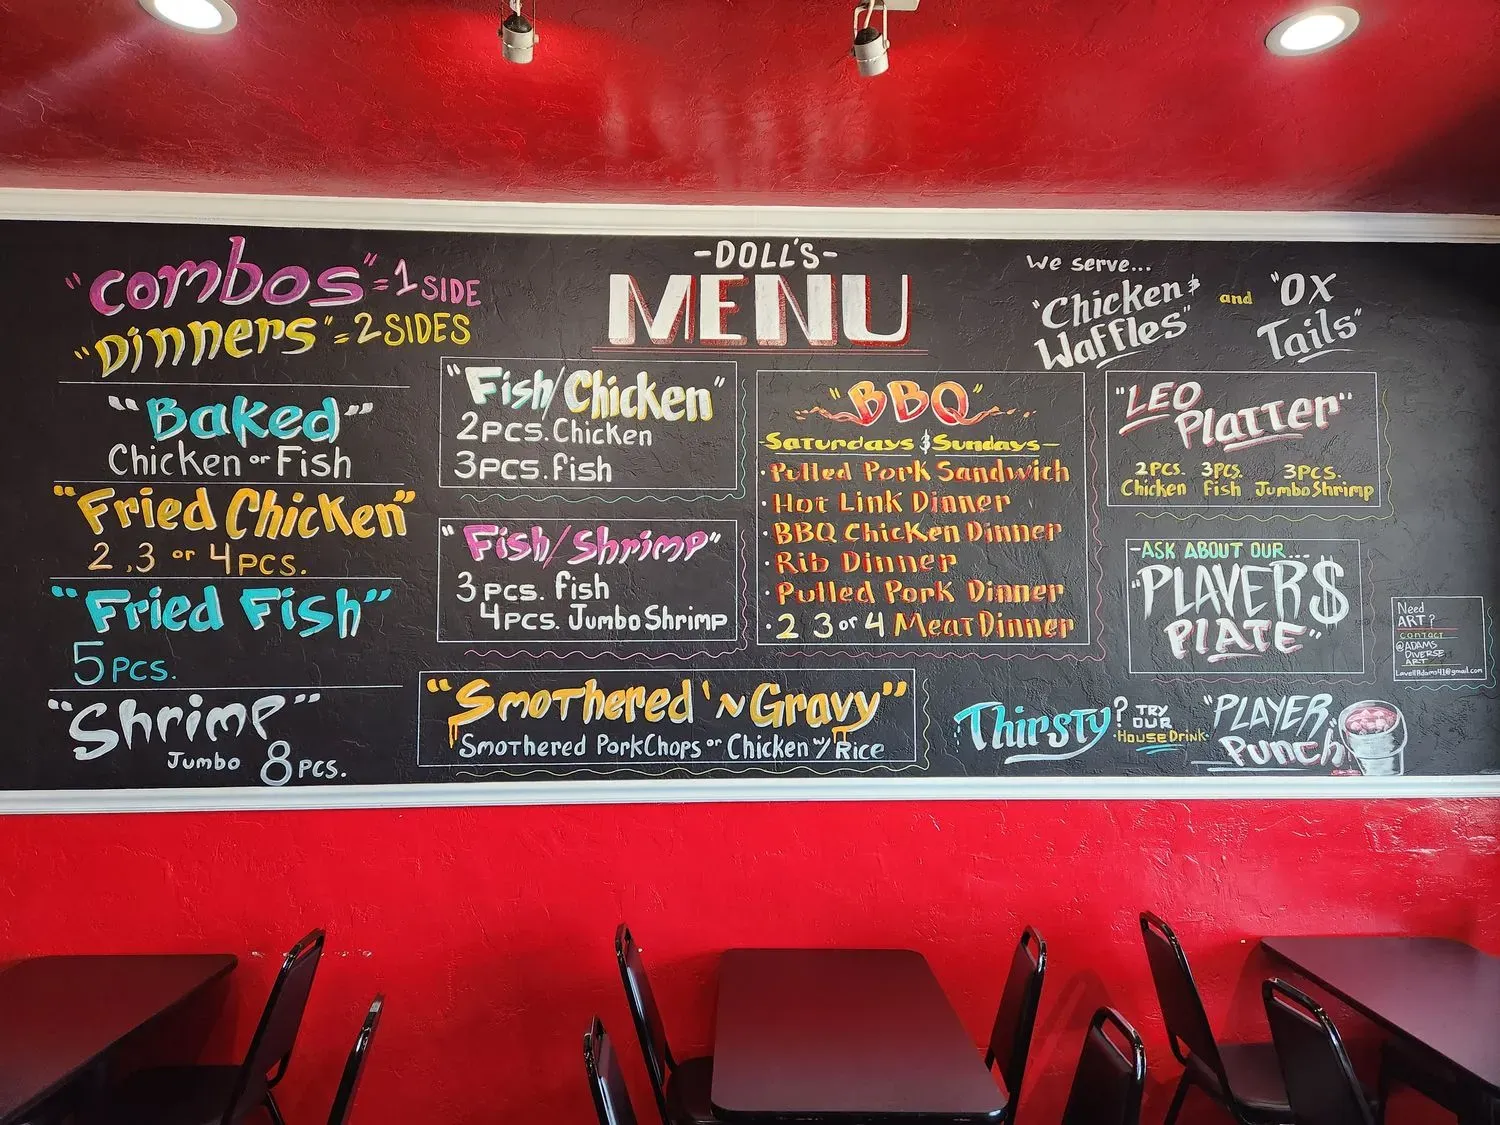 "Combos" = 1 SIDE
"Dinners" = 2 SIDES
"Baked"
Chicken or Fish
"Fried Chicken"
2, 3 or 4 PCS.
"Fried Fish"
5 PCS.
"Shrimp"
Jumbo 8 PCS.
-DOLL'S-
MENU
"Fish/Chicken"
2 PCS. Chicken
3 PCS. fish
"Fish/Shrimp"
3 PCS. fish
4 PCS. Jumbo Shrimp
"Smothered 'N Gravy"
Smothered PorkChops or Chicken w/ Rice
"BBQ"
Saturdays & Sundays
· Pulled Pork Sandwich
· Hot Link Dinner
· BBQ Chicken Dinner
· Rib Dinner
· Pulled Pork Dinner
· 2 3 or 4 Meat Dinner
We serve...
"Chicken & Waffles" and "OX Tails"
"LEO
Platter"
2 PCS. 3 PCS. 3 PCS.
Chicken Fish Jumbo Shrimp
-ASK ABOUT OUR...
"PLAYER$
PLATE"
Need
ART?
CONTACT
@ADAMS
DIVERSE
ART
LavellAdams41@gmail.com
Thirsty? TRY OUR
·House Drink·
"PLAYER
Punch"